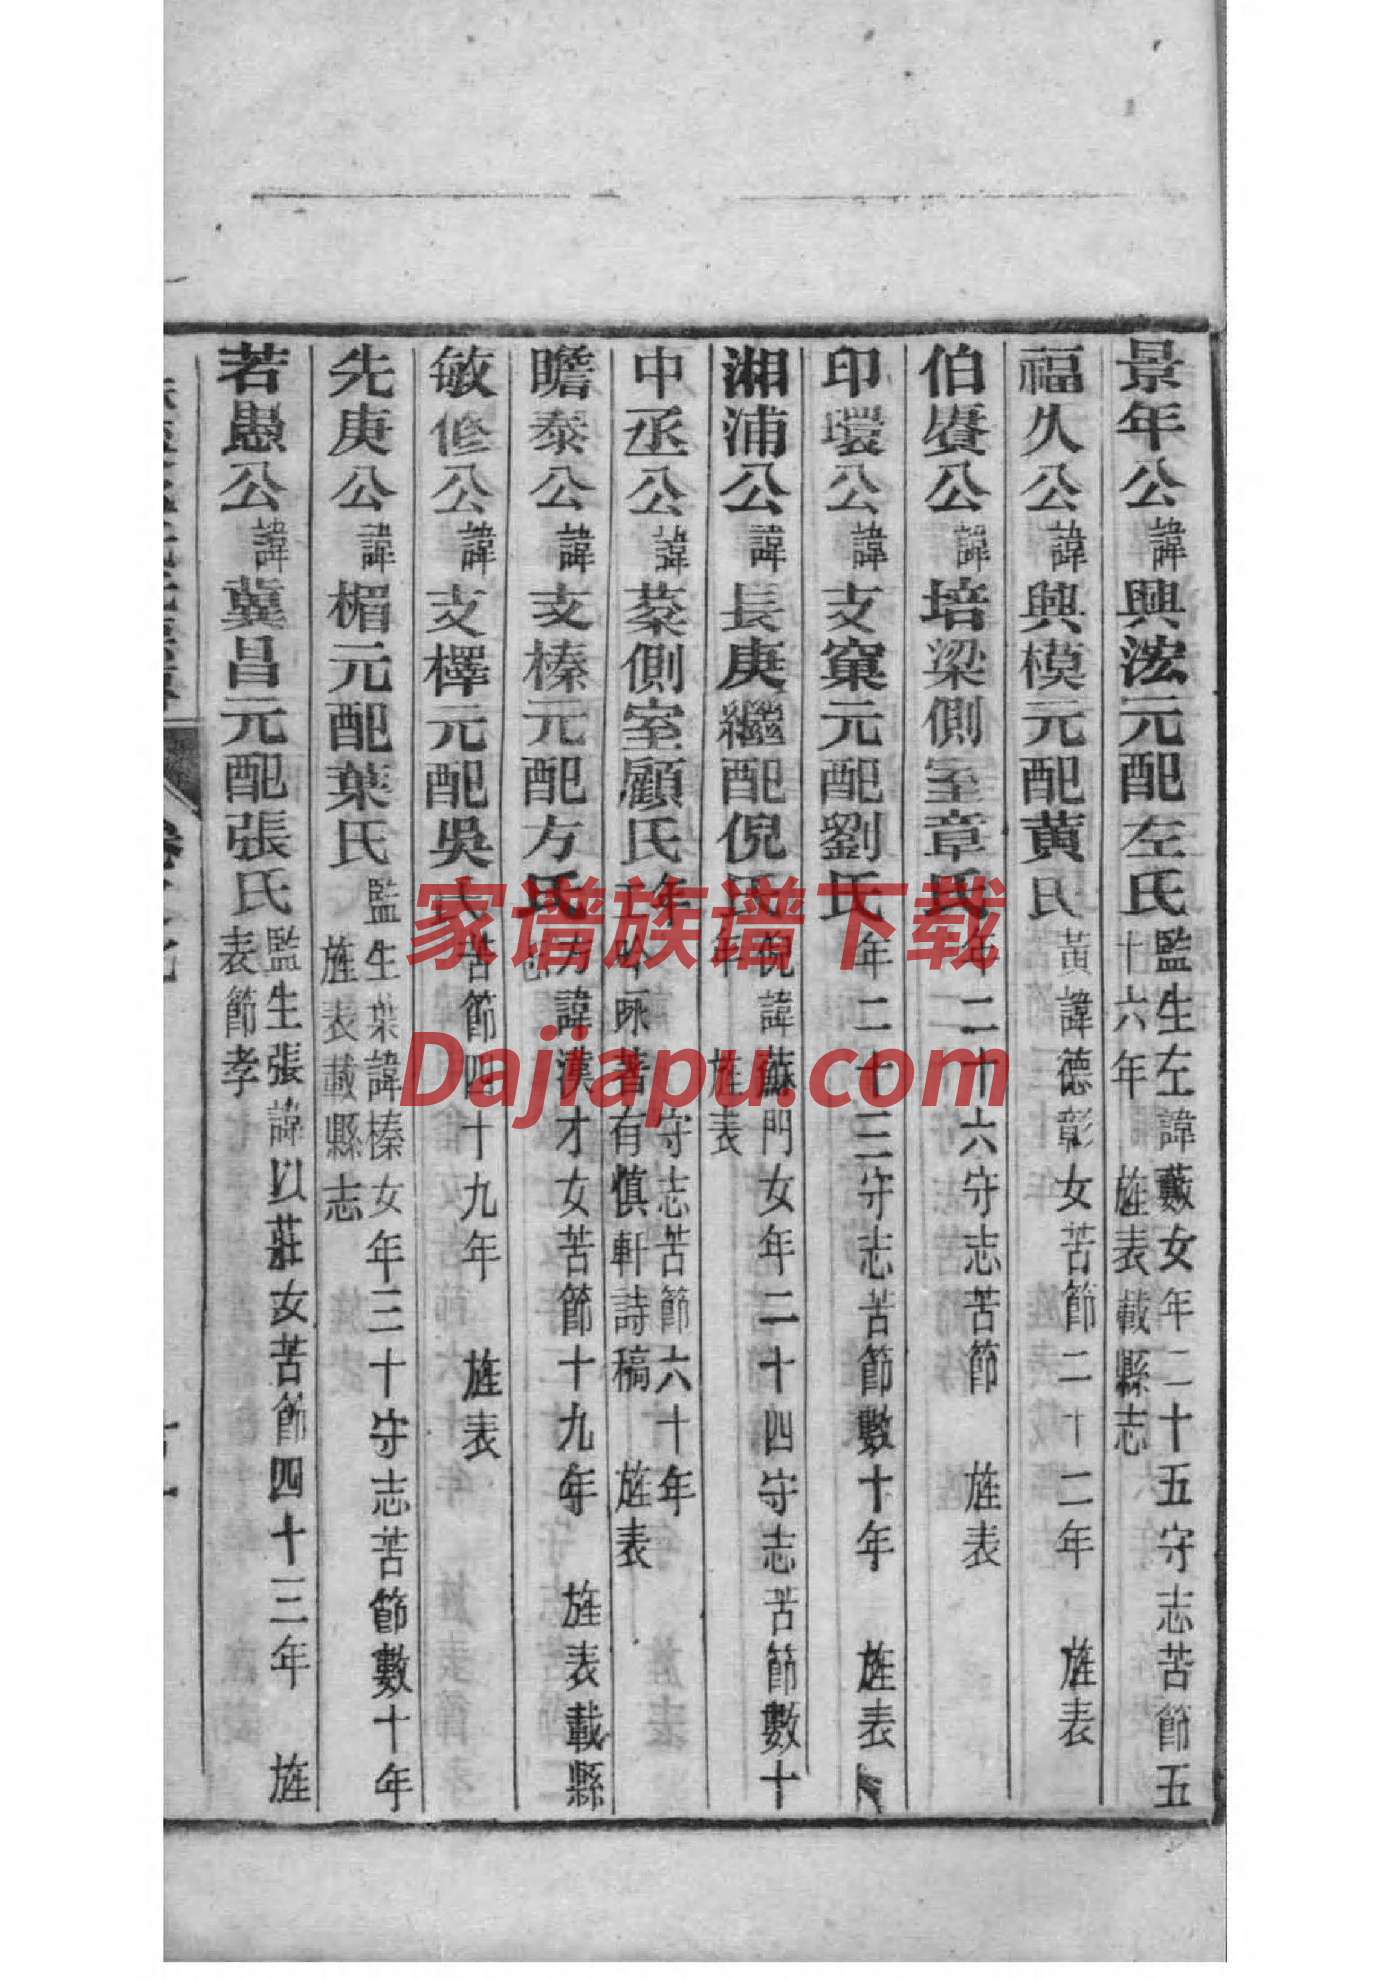 景年公諱興浤元配左氏監生左諱藙女年二十五守志苦節五十六年 旌表載縣志
福久公諱興模元配黄氏黃諱德彰女苦節二十二年 旌表
伯賡公諱培梁側室章氏年二十六守志苦節 旌表
印環公諱支窠元配劉氏年二十三守志苦節數十年 旌表
湘浦公諱長庚繼配倪氏倪諱蘇門女年二十四守志苦節數十年 旌表
中丞公諱棻側室顧氏 守志苦節六十年 吟咏著有慎軒詩稿 旌表
瞻泰公諱支榛元配方氏方諱漢才女苦節十九年 旌表載縣志
敏修公諱支檡元配吳氏苦節四十九年 旌表
先庚公諱楣元配葉氏監生葉諱榛女年三十守志苦節數十年 旌表載縣志
若愚公諱蕽昌元配張氏監生張諱以莊女苦節四十三年 旌表節孝
家谱族谱下载
Dajiapu.com